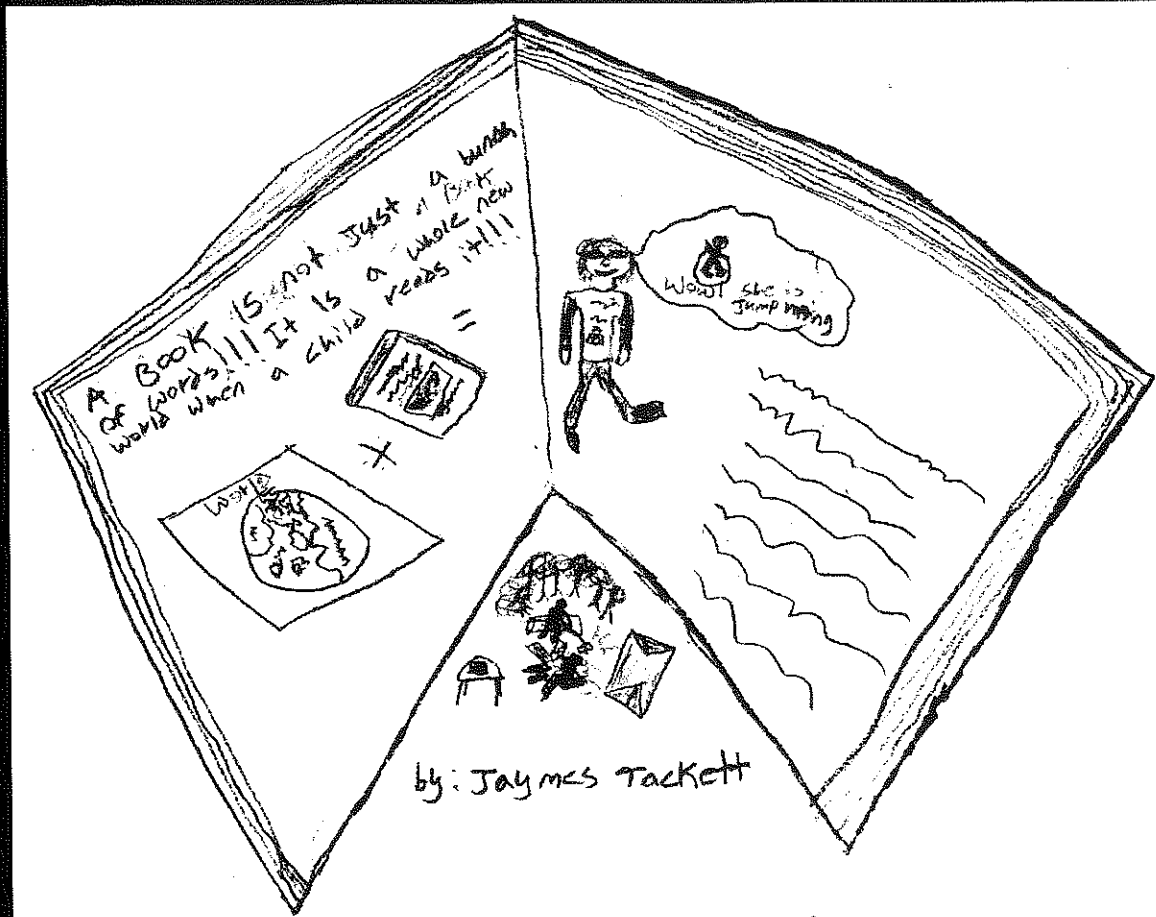 A BOOK IS not Just a bunch
of words!!! It Is a whole new
world when a child reads it!!!
=
X
World
Wow! she is
Jumpming
by: Jaymes Tackett